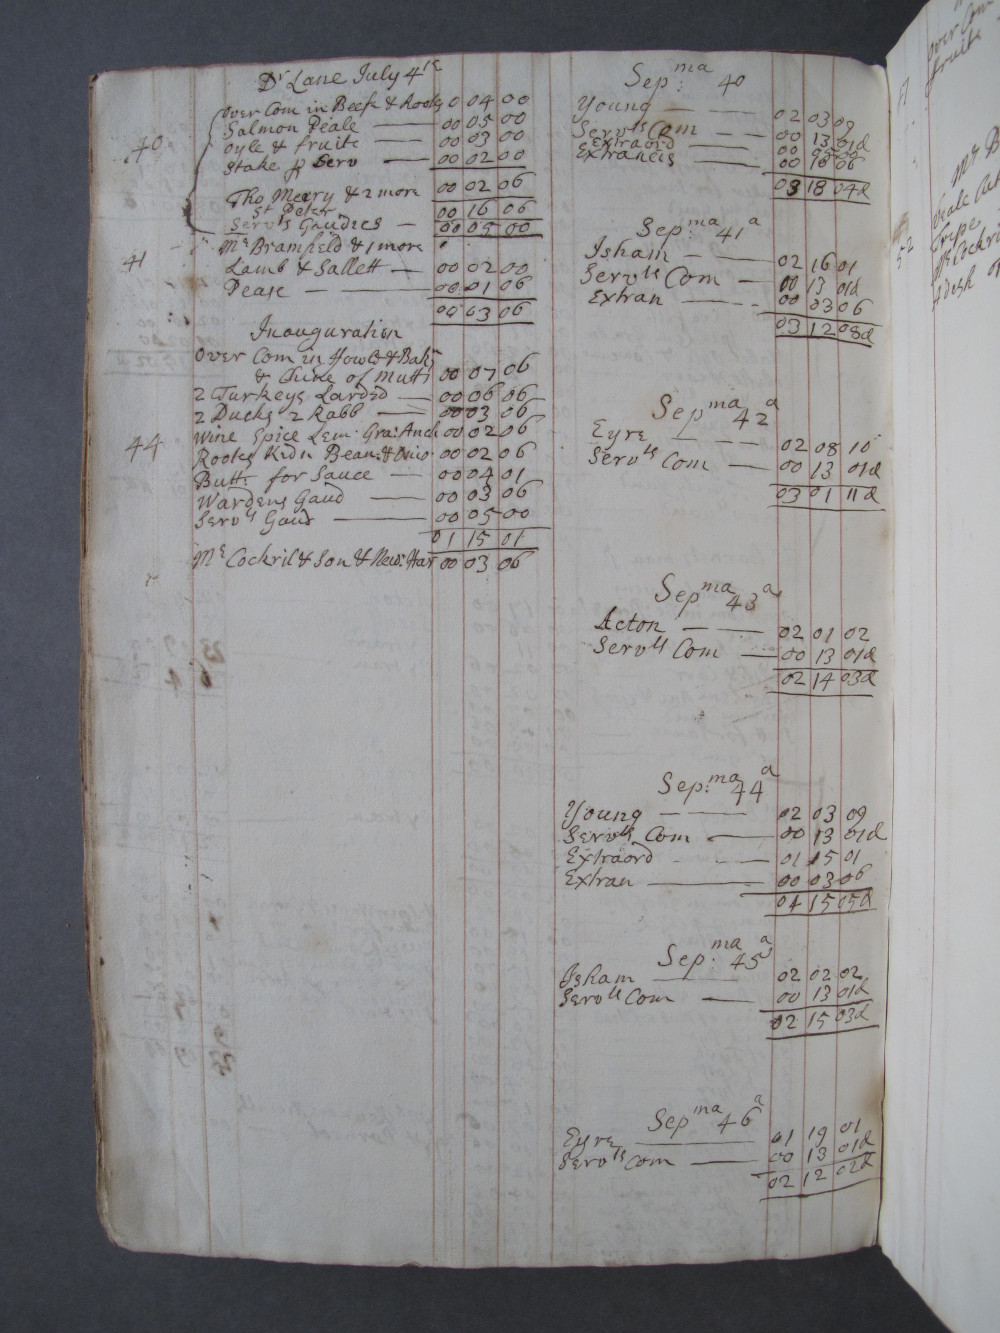 Dr Lane July 4th
over Com in Beefe & Roots 0 04 00
Salmon Peale 00 05 00
40 oyle & fruite 00 03 00
Stake p Serv 00 02 00
Tho Merry & 2 more 00 02 06
St Peter 00 16 06
Servts Gaudies 00 05 00
Mr Bramfield & 1 more
41 Lamb & Sallett 00 02 00
Pease 00 01 06
00 03 06
Inauguration
over Com in Fowls & Bak
& Chine of Mutt 00 07 06
2 Turkeys Larded 00 06 06
2 Ducks 2 Rabb 00 03 06
Wine Spice Lem. Gra: Anch 00 02 06
44 Roots Kidn Bean: & 00 02 06
Butt: for Sauce 00 04 01
Wardens Gaud 00 03 06
Servts Gaud 00 05 00
01 15 01
Mr Cockril & Son & New: Har 00 03 06
Sep:ma 40
Young 02 03 09
Servts Com 00 13 01d
Extraord
Extraneis
03 18 04d
Sep:ma 41a
Isham 02 16 01
Servts Com 00 13 01d
Extran 00 03 06
03 12 08d
Sepma 42a
Eyre 02 08 10
Servts Com 00 13 01d
03 01 11d
Sepma 43a
Acton 02 01 02
Servts Com 00 13 01d
02 14 03d
Sep:ma 44a
Young 02 03 09
Servts Com 00 13 01d
Extraord 01 15 01
Extran 00 03 06
04 15 05d
Sep:ma 45a
Isham 02 02 02
Servts Com 00 13 01d
02 15 03d
Sepma 46a
Eyre 01 19 01
Servts Com 00 13 01d
02 12 02d
over Com
fruite
51
Mr B
Veale
52 Tripe
Mr Cockril